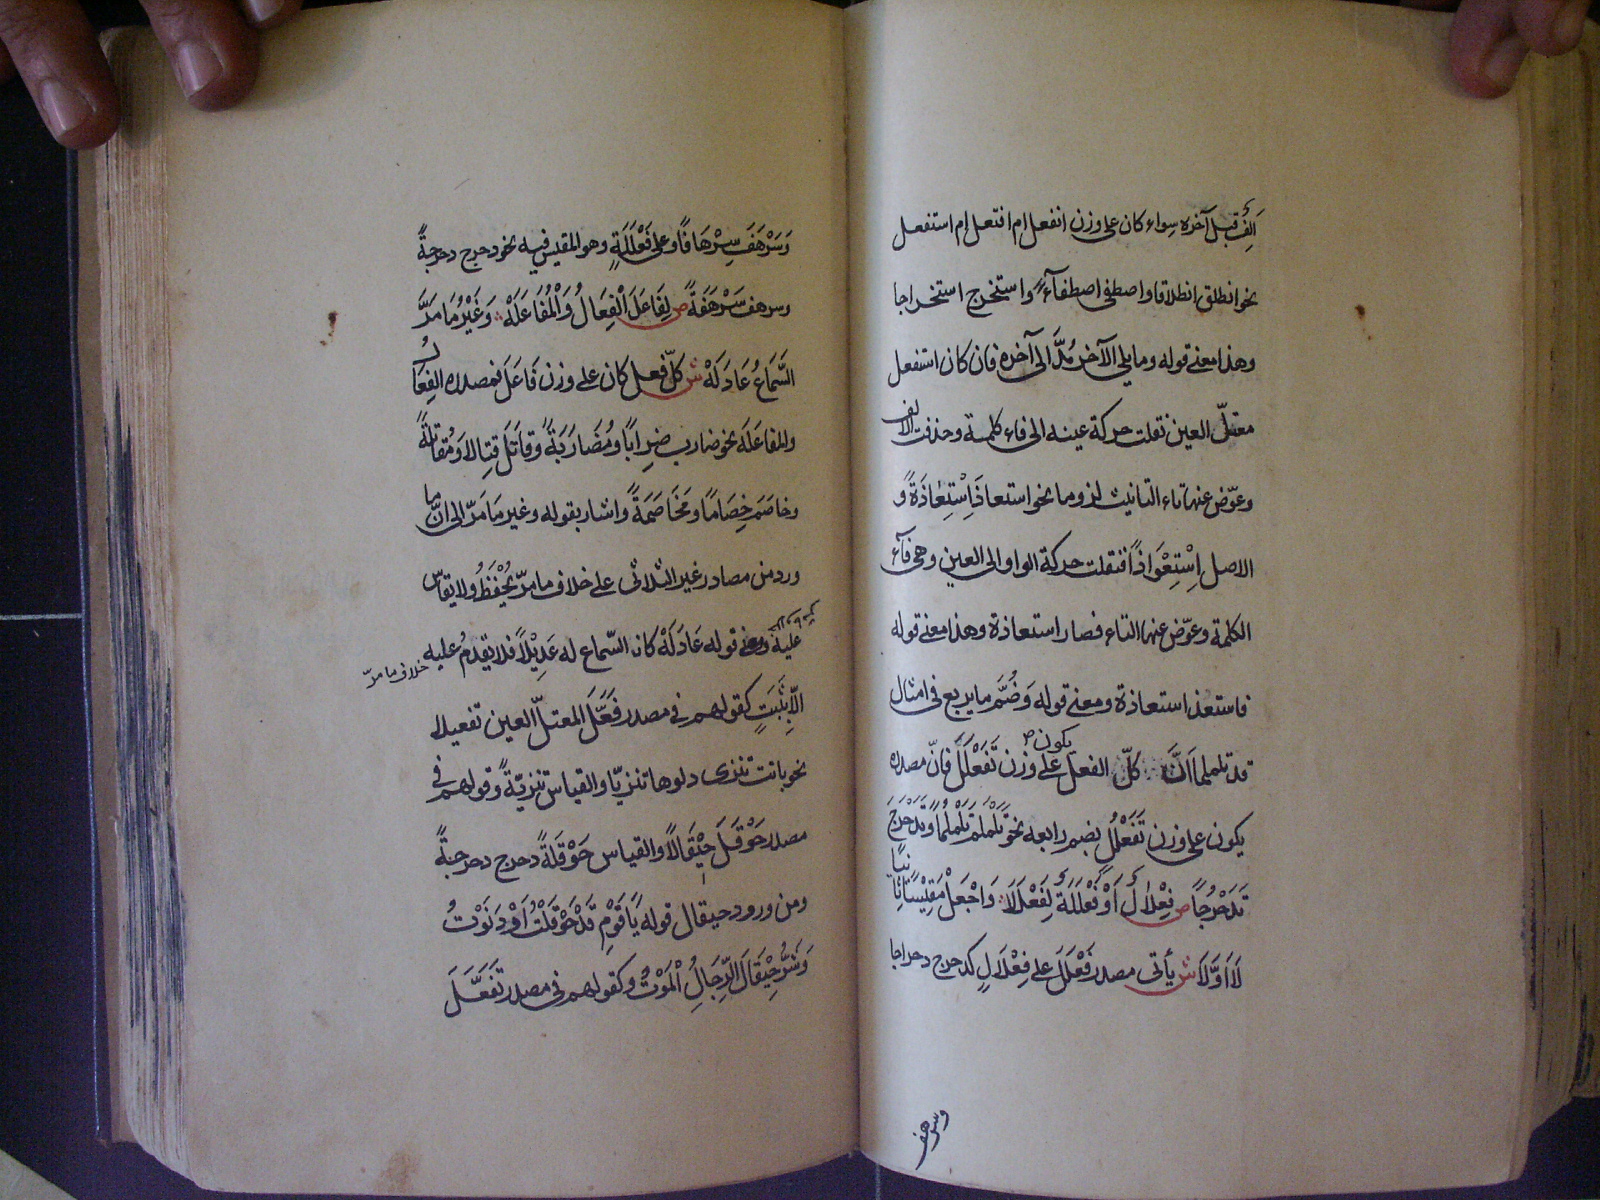 اَلِفٌ قبل آخره سواء كان على وزن انفعل ام افتعل ام استفعل
نحو انطلق انطلاقا واصطفى اصطفآءً واستخرج استخراجا
وهذا معنى قوله وما يلي الآخر مُدَّ الى آخره فان كان استفعل
معتلّ العين نقلت حركة عينه الى فاء كلمة وحذفت الالف
وعوّض عنها تاء التانيث لزوما نحو استعاذ اِسْتِعٰاذَةً وَ
الاصل اِسْتِعْوَاذًا فنقلت حركة الواو الى العين وهى فآء
الكلمة وعوّض عنها التاء فصار استعاذة وهذا معنى قوله
فاستعذ استعاذة ومعنى قوله وَضُمَّ ما يربع فى امثال
قد تلملما اَنَّ كلّ الفعل يكون على وزن تَفَعْلَلَ فانّ مصدره
يكون على وزن تَفَعْلُلٍ بضم رابعه نحو تَلَمْلَمَ تَلَمْلُمًا وَتَدَحْرَجَ
تَدَحْرُجًا ص فِعْلاٰلٌ اَوْ فَعْلَلَةٌ لِفَعْلَلَا وَاجْعَلْ مَقِيْسًا ثانيًا
لَا اَوَّلَا ش يأتى مصدر فَعْلَلَ على فِعْلَالٍ كدحرج دحراجا
وسرهف
وَسَرْهَفَ سِرْهَافًا وعلى فَعْلَلَةٍ وهو المقيس فيه نحو دحرج دحرجةً
وسرهف سَرْهَفَةً ص لِفَاعَلَ الْفِعَالُ وَالْمُفَاعَلَهْ وَغَيْرُ مَا مَرَّ
السَّمَاعُ عَادَلَهْ ش كلّ فعل كان على وزن فَاعَلَ فمصدره الفِعَالُ
والمفاعَلَه نحو ضارب ضِرابًا وَمُضَارَبَةً وقاتَلَ قتالا وَمُقاتلةً
وخاصَمَ خِصَامًا ومُخَاصَمَةً واشار بقوله وغير مَا مَرّ الى انّ ما
ورد من مصادر غير الثلاثى على خلاف ما مرّ يُحْفَظُ ولا يقاس
عليه ومعنى قوله عَادَلَهْ كان السّماع له عَدِيْلًا فلا يقدم عليه
خلاف ما مرّ
الّا بثَبَتٍ كقولهم فى مصدر فَعَّلَ المعتلّ العين تفعيلا
نحو باتت تنزى دلوها تنزيّا والقياس تنزيّةً وقولهم فى
مصدر حَوْقَلَ حِيْقَالًا والقياس حَوْقَلَةً دحرج دحرجةً
ومن ورود حيقال قوله يَا قَوْمِ قَدْ حَوْقَلْتُ اَوْ دَنَوْتُ
وَشَرُّ حِيْقَالِ الرِّجَالِ الْمَوْتُ وكقولهم فى مصدر تَفَعَّلَ